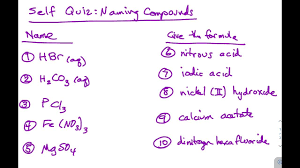 Self Quiz: Naming Compounds
Name
① HBr (aq)
② H₂CO₃ (aq)
③ PCl₃
④ Fe(NO₃)₃
⑤ MgSO₄
Give the formula
⑥ nitrous acid
⑦ iodic acid
⑧ nickel (II) hydroxide
⑨ calcium acetate
⑩ dinitrogen hexafluoride